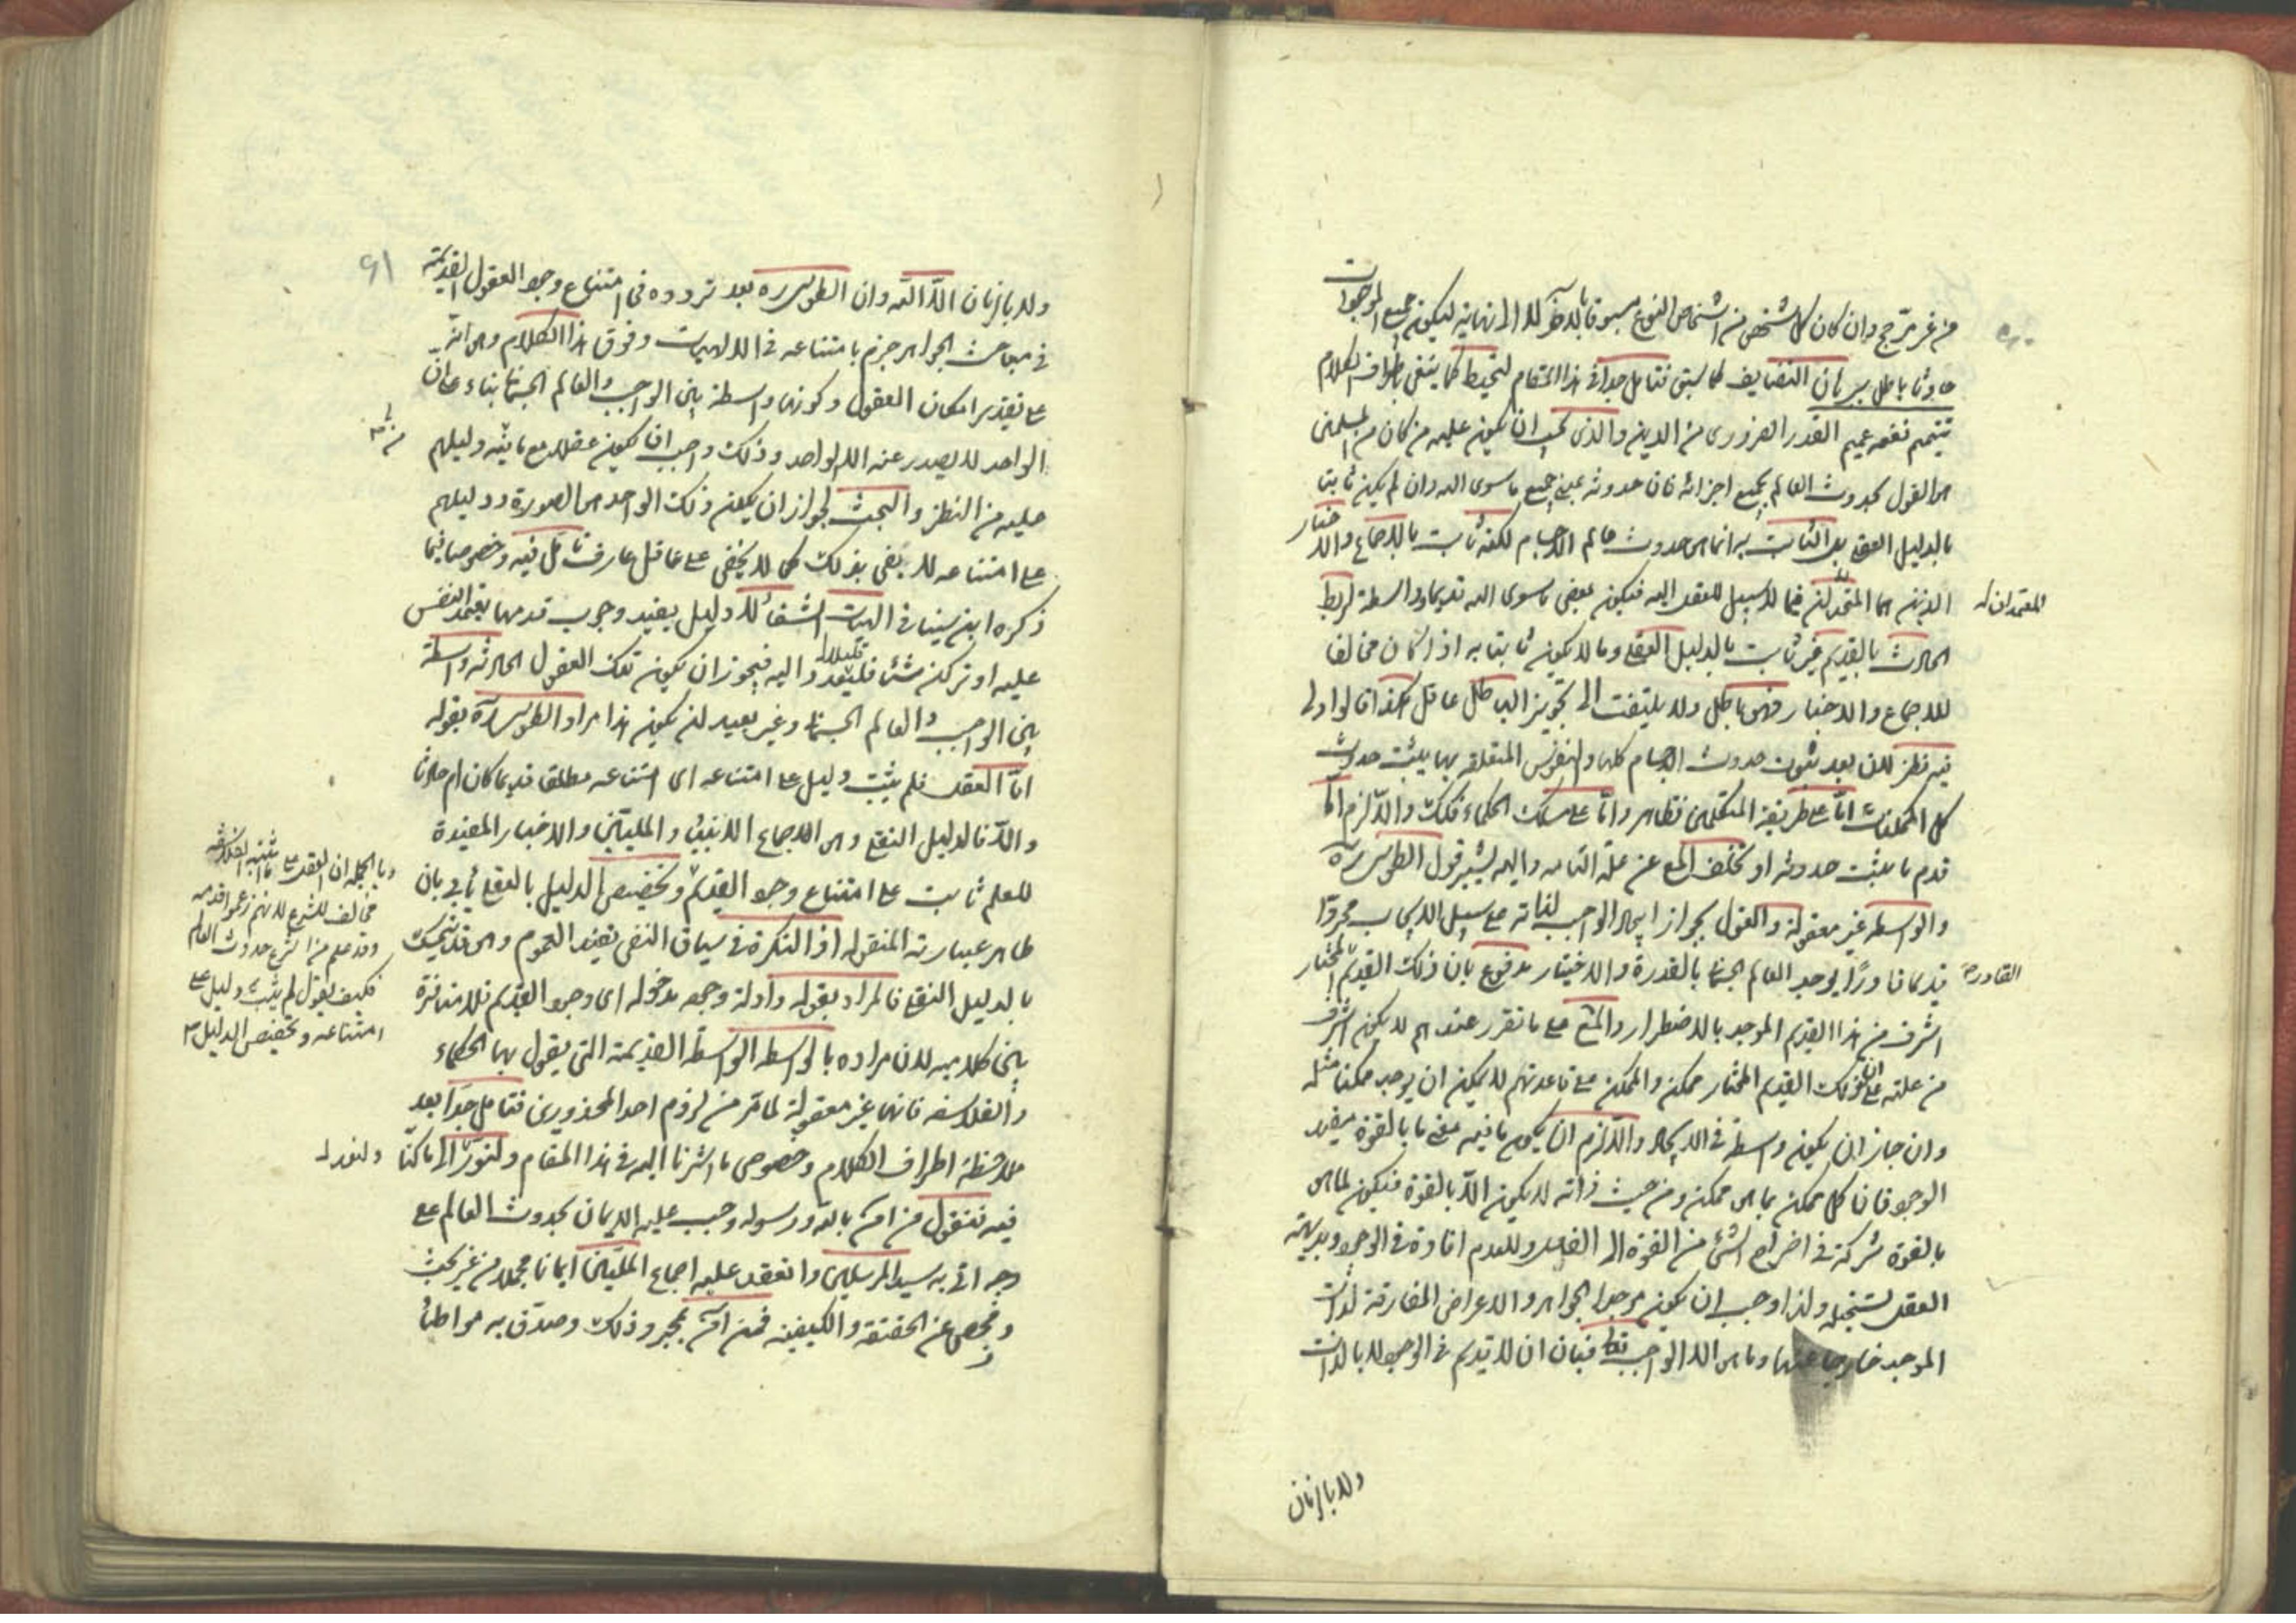 من غير ترجح وان كان كل شخص من اشخاص النوع مسبوقا بالاخر لا الى نهاية ليكون جميع الموجودات
حادثا باطل ببرهان التضايف لما سبق فتامل جدا في هذا المقام لتحيط كما ينبغي باطراف الكلام
تتميم نفعه عميم القدر الضروري من الدين والذي يجب ان يكون عليه من كان من المسلمين
هو القول بحدوث العالم بجميع اجزائه فان حدوثه بمعنى جميع ما سوى الله وان لم يكن ثابتا
بالدليل العقلي بل الثابت به انما هو حدوث عالم الاجسام لكنه ثابت بالاجماع والاخبار
الذينهما المتحدان فيما لا سبيل للعقل اليه فيكون بعض ما سوى الله قديما وواسطة لربط
المعتمدان
الحادث بالقديم غير ثابت بالدليل العقلي وما لا يكون ثابتا به اذا كان مخالفا
للاجماع والاخبار فهو باطل ولا يلتفت الى تجويز الباطل عاقل هكذا قالوا ولي
فيه نظر لان بعد ثبوت حدوث الاجسام كلها والنفوس المتعلقة بها يثبت حدوث
كل الممكنات اما على طريقة المتكلمين فظاهر واما على مسلك الحكماء فكذلك والا لزم اما
قدم ما يثبت حدوثه او تخلف المع عن علته التامة واليه يشير قول الطوسي ره
والواسطة غير معقولة والقول بجواز ايجاد الواجب لذاته على سبيل الايجاب مجردا
قديما قادرا يوجد العالم الجسماني بالقدرة والاختيار مدفوع بان ذلك القديم المختار
القادرة
اشرف من هذا القديم الموجد بالاضطرار والمع على ما تقرر عندهم لا يكون اشرف
من علته على ان ذلك القديم المختار ممكن والممكن على قاعدتهم لا يمكن ان يوجد ممكنا مثله
وان جاز ان يكون واسطة في الايجاد والا لزم ان يكون ما فيه معنى ما بالقوة مفيد
الوجود فان كل ممكن بما هو ممكن ومن حيث ذاته لا يكون الا بالقوة فيكون لما هو
بالقوة شركة في اخراج الشئ من القوة الى الفعل وللعدم افادة في الوجود وبديهة
العقل تستحيله ولذا وجب ان يكون موجد الجواهر والاعراض المفارقة لذات
الموجد خارجا عنها وما هو الا الواجب تعالى فبان ان لا قديم في الوجود لا بالذات
ولا بالزمان
ولا بالزمان الا الله وان الطوسي ره بعد تردده في امتناع وجود العقول القديمة
٩١
في مباحث الجواهر جزم بامتناعه في الالهيات وفوق هذا الكلام وهو انه
على تقدير امكان العقول وكونها واسطة بين الواجب والعالم الجسماني بناء على ان
الواحد لا يصدر عنه الا الواحد وذلك واجب ان يكون عقلا مع ما يثبته دليلهم
عليه من النظر والبحث لجواز ان يكون ذلك الواحد هو الصورة ودليلهم
على امتناعه لا يفي بذلك كما لا يخفى على عاقل عارف تامل فيه وخصوصا فيما
ذكره ابن سينا في الهيات الشفاء لا دليل يفيد وجوب قدمها يعتمد النفس
عليه او تركن شئا قليلا اليه فيجوز ان يكون تلك العقول الحادثة واسطة
بين الواجب والعالم الجسماني وغير بعيد ان يكون هذا مراد الطوسي ره بقوله
اما العقل فلم يثبت دليل على امتناعه اي امتناعه مطلقا قديما كان ام حادثا
والا فالدليل النقلي وهو الاجماع الانبياء والمليين والاخبار المفيدة
للعلم ثابت على امتناع وجود القديم وتخصيص الدليل بالعقلي ياباه بان
ظاهر عبارته المنقولة اذ النكرة في سياق النفي تفيد العموم وهو قد يتمسك
بالدليل النقلي فالمراد بقوله وادلة وجوده مدخولة اي وجود القديم فلا منافرة
بين كلاميه لان مراده بالواسطة الواسطة القديمة التي يقول بها الحكماء
والفلاسفة فانها غير معقولة لما مر من لزوم احد المحذورين فتامل جدا بعد
ملاحظة اطراف الكلام وخصوص ما اشرنا اليه في هذا المقام ولنعد الى ما كنا
ولنعد
فيه فنقول من آمن بالله ورسوله وجب عليه الايمان بحدوث العالم على
وجه اتى به سيد المرسلين وانعقد عليه اجماع المليين ايمانا مجملا من غير بحث
وفحص عن الحقيقة والكيفية فمن آمن بمجرد ذلك وصدق به مواطئا
وبالجملة ان العقل على ما اثبته الفلاسفة
مخالف للشرع لانهم زعموا قدمه
وقد علم من الشرع حدوث العالم
فكيف يقول لم يثبت دليل على
امتناعه وتخصيص الدليل